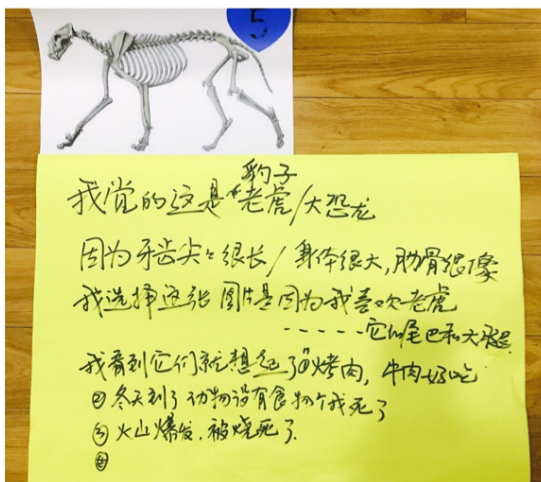 5
豹子
我觉的这是“老虎/大恐龙
因为牙齿尖々很长/身体很大,肋骨很像
我选择这张图片是因为我喜欢老虎
-----它们尾巴和大腿
我看到它们就想起了①烤肉,牛肉好吃
②冬天到了动物没有食物个我死了
③火山爆发,被烧死了.
④